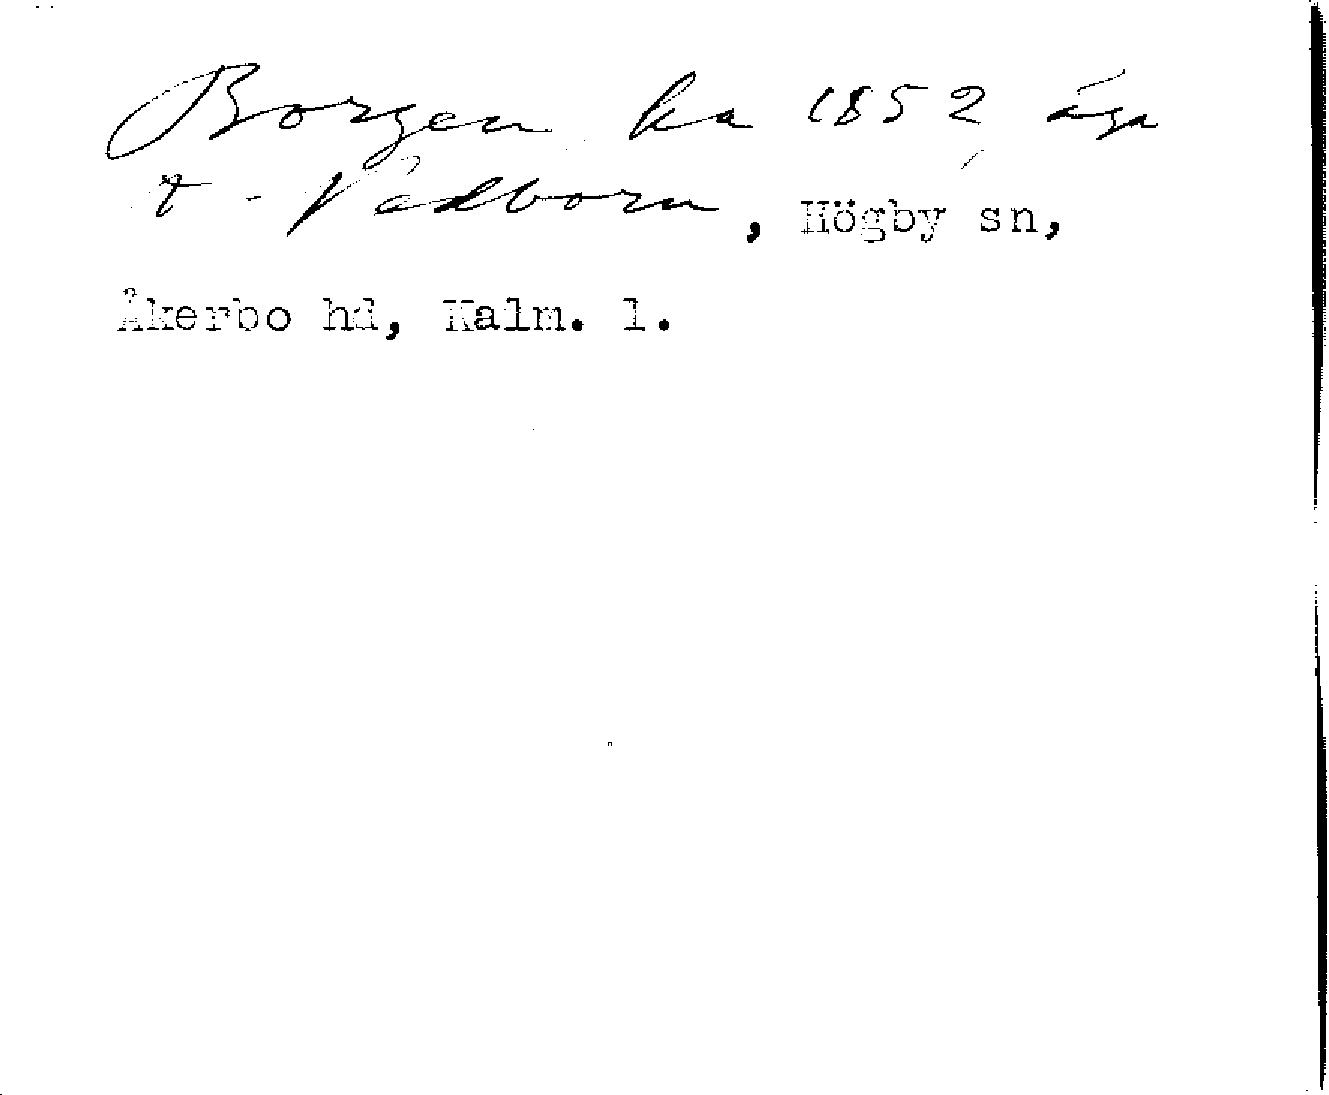 Borgen ka 1852 äga
t. Vedborm, Högby sn,
Åkerbo hd, Kalm. l.